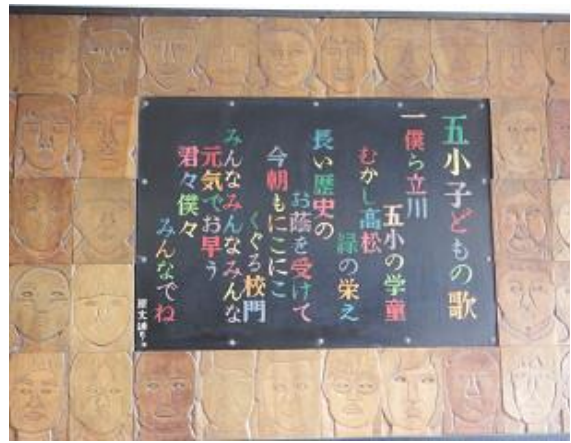 五小子どもの歌
一僕ら立川
五小の学童
むかし高松
緑の栄え
長い歴史の
お蔭を受けて
今朝もにこにこ
くぐる校門
みんなみんなみんな
元気でお早う
君々僕々
みんなでね